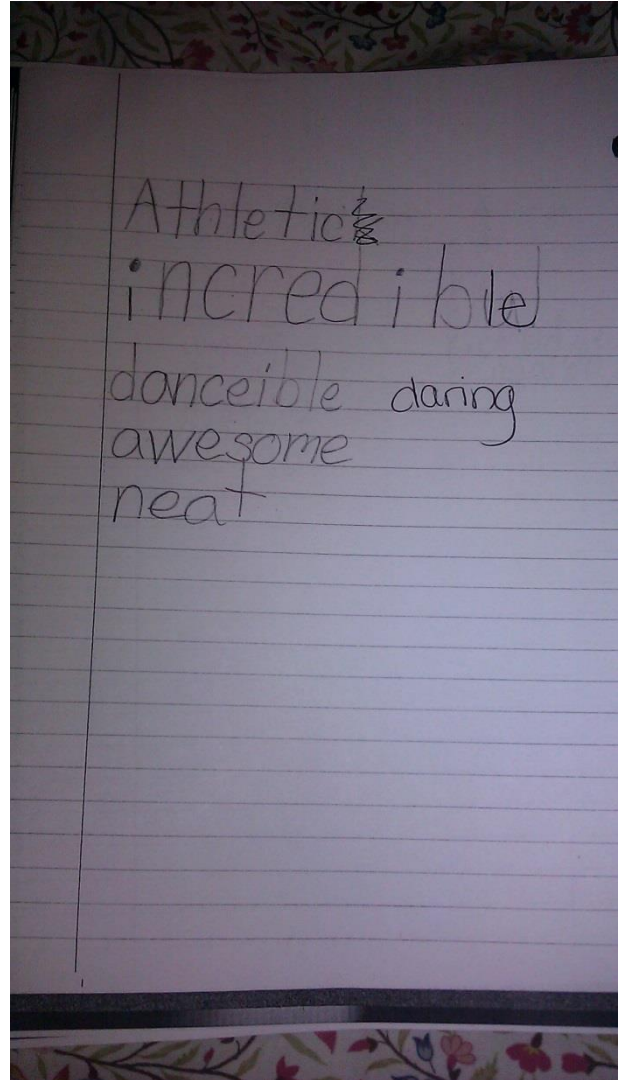 Athletic
incredible
danceible daring
awesome
neat